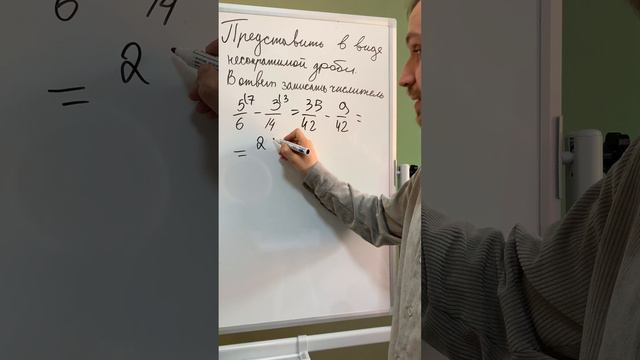 Представить в виде
несократимой дроби.
В ответ записать числитель
5⁽⁷/6 - 3⁽³/14 = 35/42 - 9/42 =
= 2